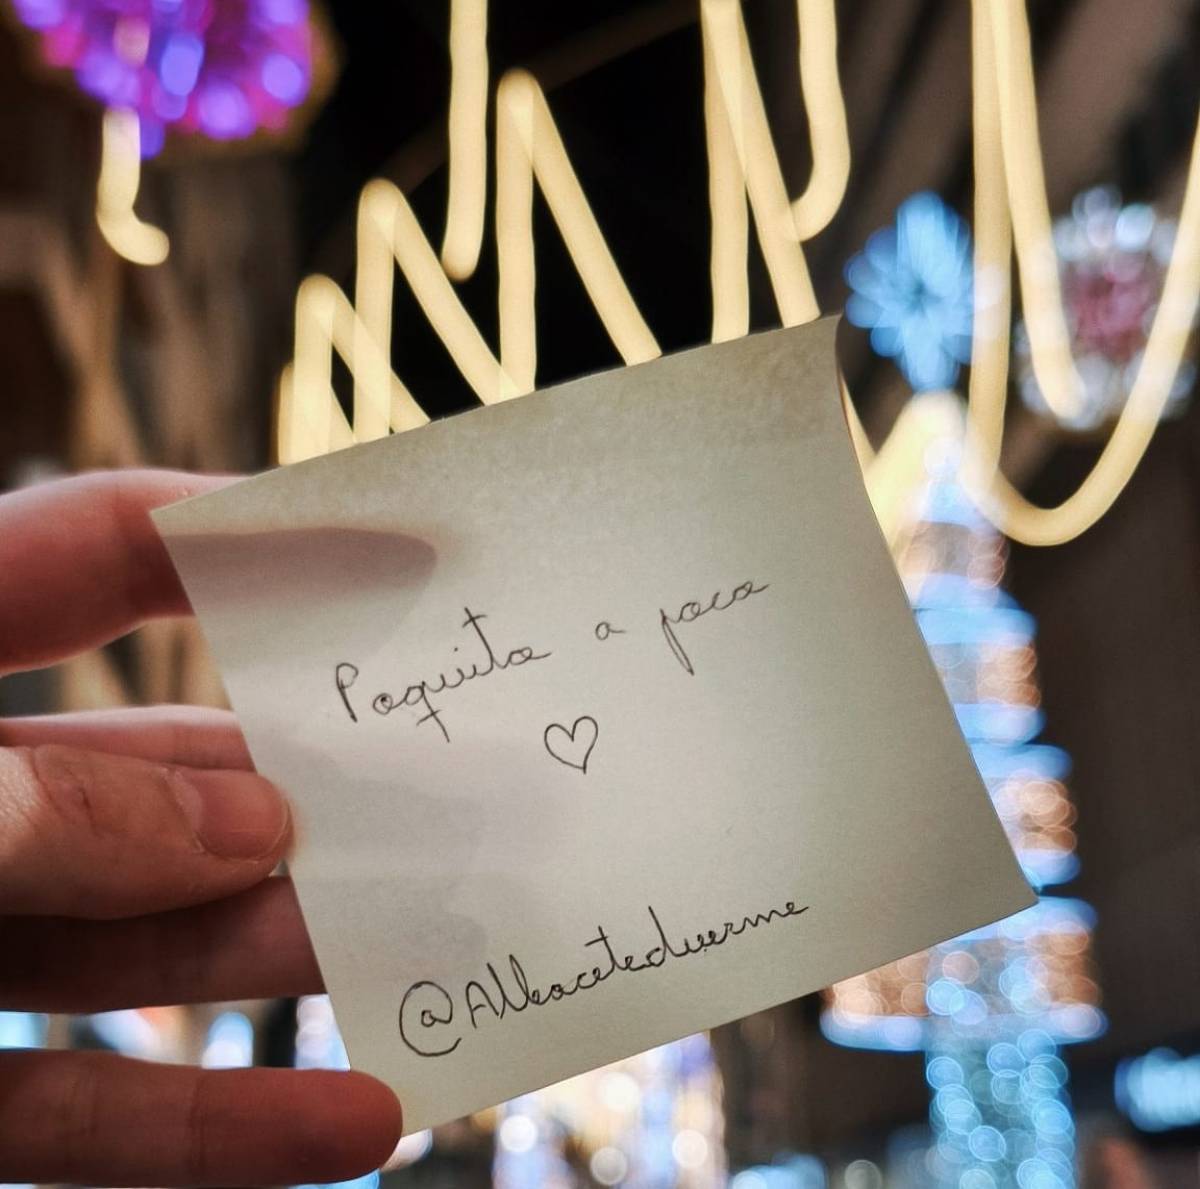 Poquito a poco
@Albaceteduerme